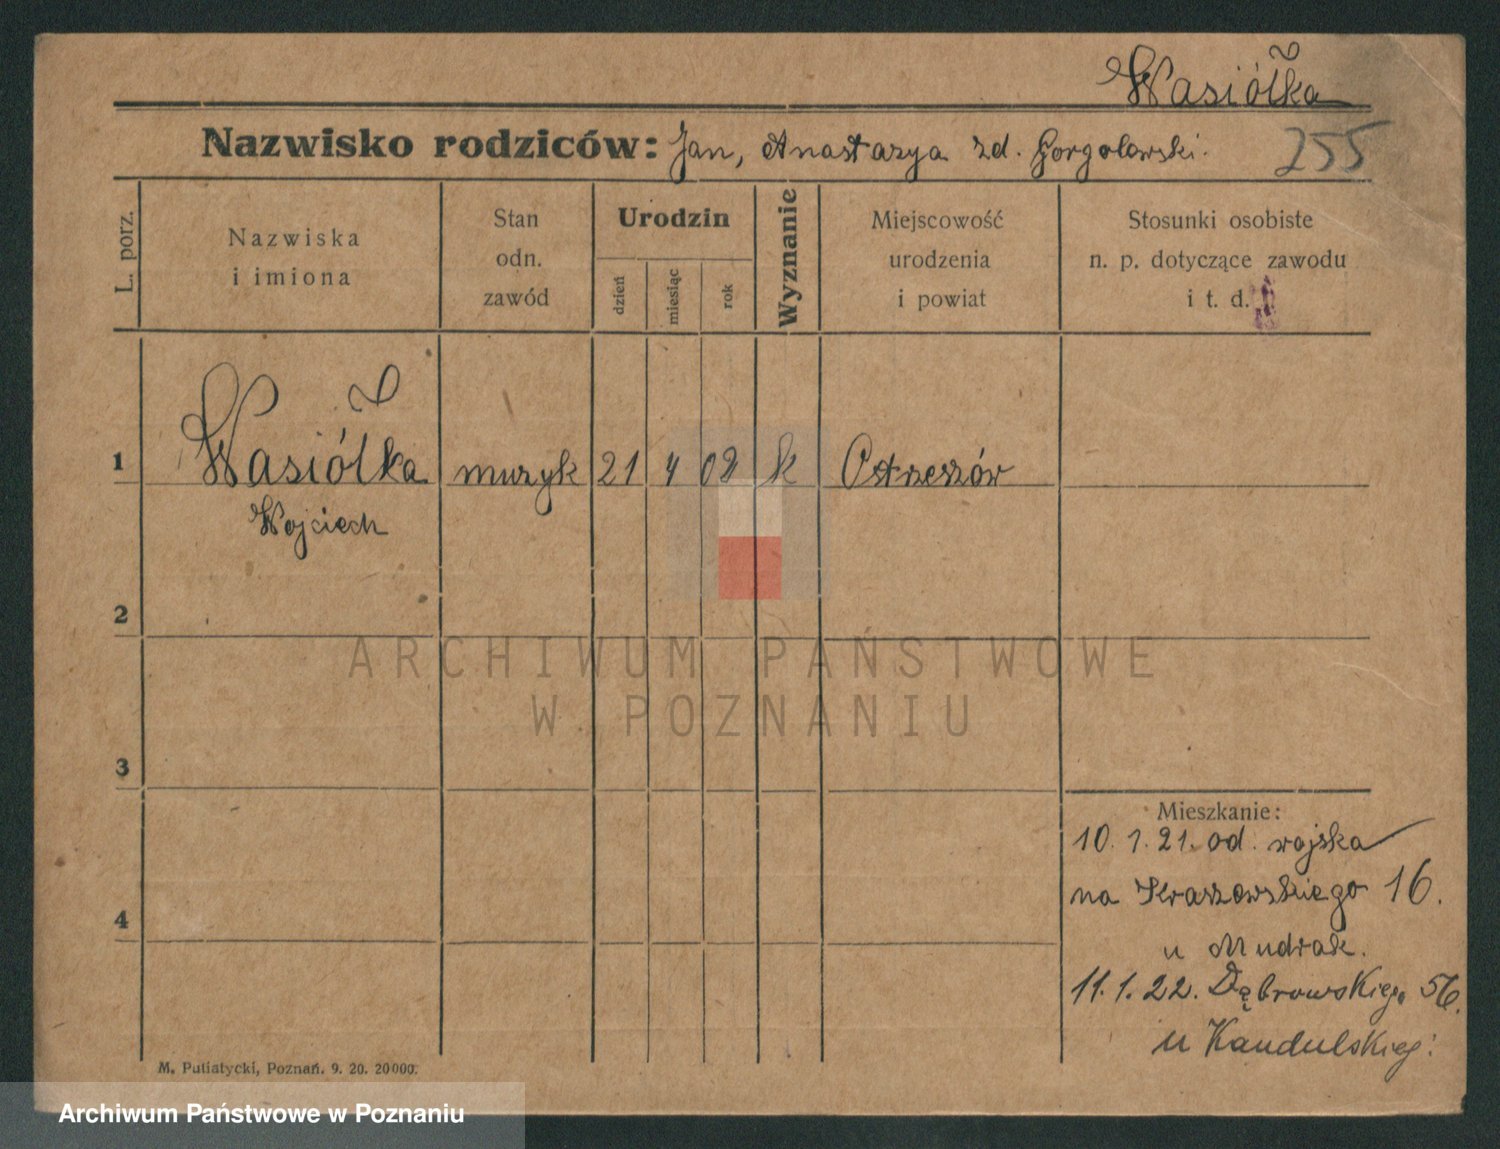 Wasiółka
Nazwisko rodziców: Jan, Anastazya zd. Gorgolewski.
255
L. porz.
Nazwiska
i imiona
Stan
odn.
zawód
Urodzin
dzień
miesiąc
rok
Wyznanie
Miejscowość
urodzenia
i powiat
Stosunki osobiste
n. p. dotyczące zawodu
i t. d.
1 Wasiółka muzyk 21 4 02 k Ostrzeszów
Wojciech
2
3
4
Mieszkanie:
10. 1. 21. od. wojska
na Kraszewskiego 16.
u Mudrak.
11. 1. 22. Dąbrowskiego 56.
u Kandulskieg.
M. Putiatycki, Poznań. 9. 20. 20000.
ARCHIWUM PAŃSTWOWE
W POZNANIU
Archiwum Państwowe w Poznaniu